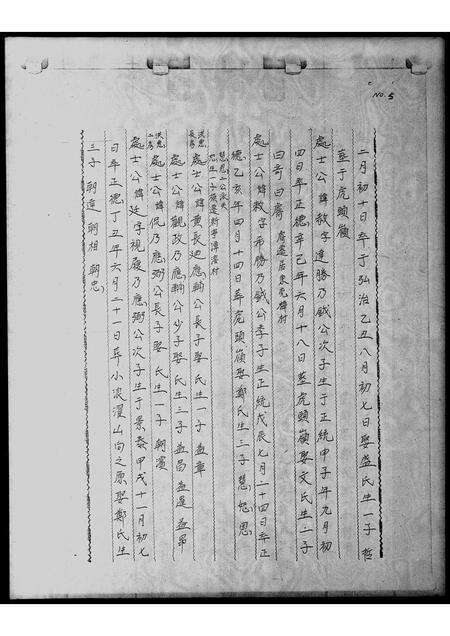 NO. 5
二月初十日卒于弘治乙丑八月初七日娶盛氏生一子哲
葬于虎頭嶺
處士公諱敦字達勝乃鉞公次子生于正統甲子年九月初
四日卒正德辛己年六月十八日葬虎頭嶺娶文氏生二子
曰奇曰齋
齋遷居東莞樟村
處士公諱敖字希勝乃鉞公季子生正統戊辰七月二十四日卒正
德乙亥年四月十四日葬虎頭嶺娶鄭氏生三子慧 恕 思
處士公諱黄長廽應綱公長子娶 氏生一子 益章
處士公諱觀政乃應綱公少子娶 氏生三子 益昌 益進 益昂
處士公諱侃乃應弼公長子娶 氏生一子 朝濱
處士公諱廷字視履乃應弼公次子生于景泰甲戌十一月初七
日卒正德丁丑年六月二十一日葬小浪漢山向之原娶鄭氏生
三子 朝遠 朝相 朝忠